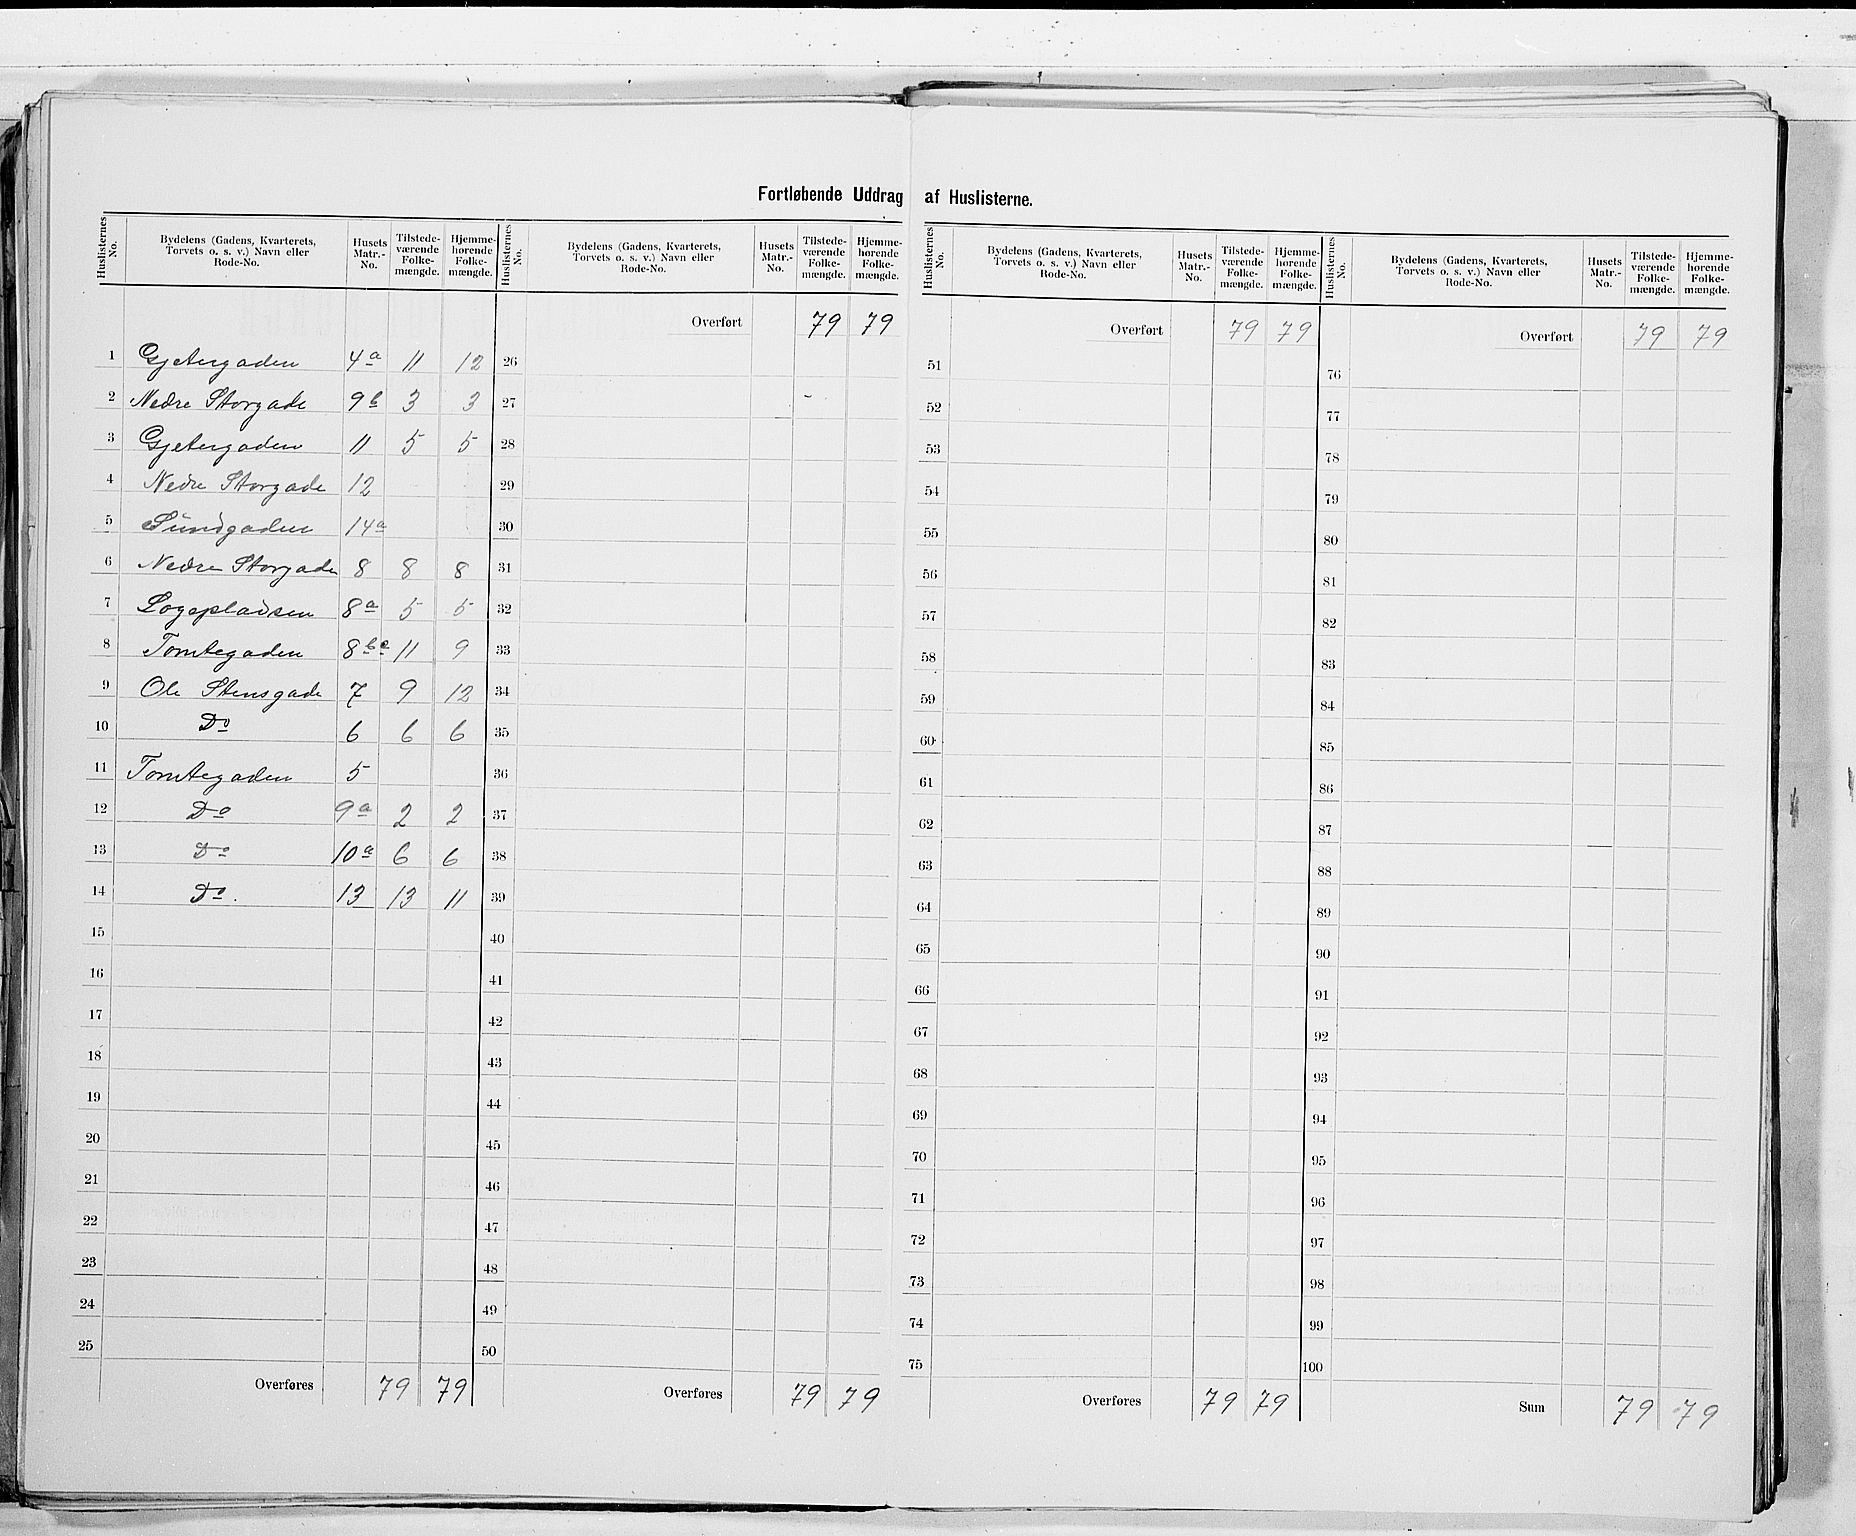 Fortløbende Uddrag af Huslisterne.
Huslisternes No. | Bydelens (Gadens, Kvarterets, Torvets o. s. v.) Navn eller Rode-No. | Husets Matr.-No. | Tilstede-værende Folke-mængde. | Hjemme-hørende Folke-mængde.
1 Gjetergaden 4a 11 12
2 Nedre Storgade 9b 3 3
3 Gjetergaden 11 5 5
4 Nedre Storgade 12
5 Sundgaden 14a
6 Nedre Storgade 8 8 8
7 Logepladsen 8a 5 5
8 Tomtegaden 8bc 11 9
9 Ole Stensgade 7 9 12
10 Do 6 6 6
11 Tomtegaden 5
12 Do 9a 2 2
13 Do 10a 6 6
14 Do. 13 13 11
15
16
17
18
19
20
21
22
23
24
25
Overføres 79 79
Huslisternes No. | Bydelens (Gadens, Kvarterets, Torvets o. s. v.) Navn eller Rode-No. | Husets Matr.-No. | Tilstede-værende Folke-mængde. | Hjemme-hørende Folke-mængde.
Overført 79 79
26
27
28
29
30
31
32
33
34
35
36
37
38
39
40
41
42
43
44
45
46
47
48
49
50
Overføres 79 79
Huslisternes No. | Bydelens (Gadens, Kvarterets, Torvets o. s. v.) Navn eller Rode-No. | Husets Matr.-No. | Tilstede-værende Folke-mængde. | Hjemme-hørende Folke-mængde.
Overført 79 79
51
52
53
54
55
56
57
58
59
60
61
62
63
64
65
66
67
68
69
70
71
72
73
74
75
Overføres 79 79
Huslisternes No. | Bydelens (Gadens, Kvarterets, Torvets o. s. v.) Navn eller Rode-No. | Husets Matr.-No. | Tilstede-værende Folke-mængde. | Hjemme-hørende Folke-mængde.
Overført 79 79
76
77
78
79
80
81
82
83
84
85
86
87
88
89
90
91
92
93
94
95
96
97
98
99
100
Sum 79 79